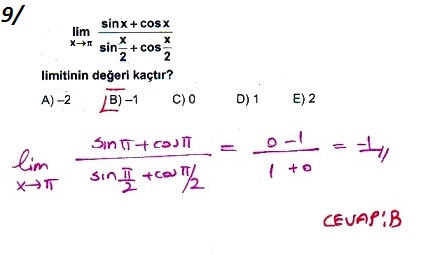 9/
lim x→π (sin x + cos x) / (sin x/2 + cos x/2)
limitinin değeri kaçtır?
A) –2 B) –1 C) 0 D) 1 E) 2
lim x→π (sin π + cos π) / (sin π/2 + cos π/2) = (0 – 1) / (1 + 0) = –1//
CEVAP:B